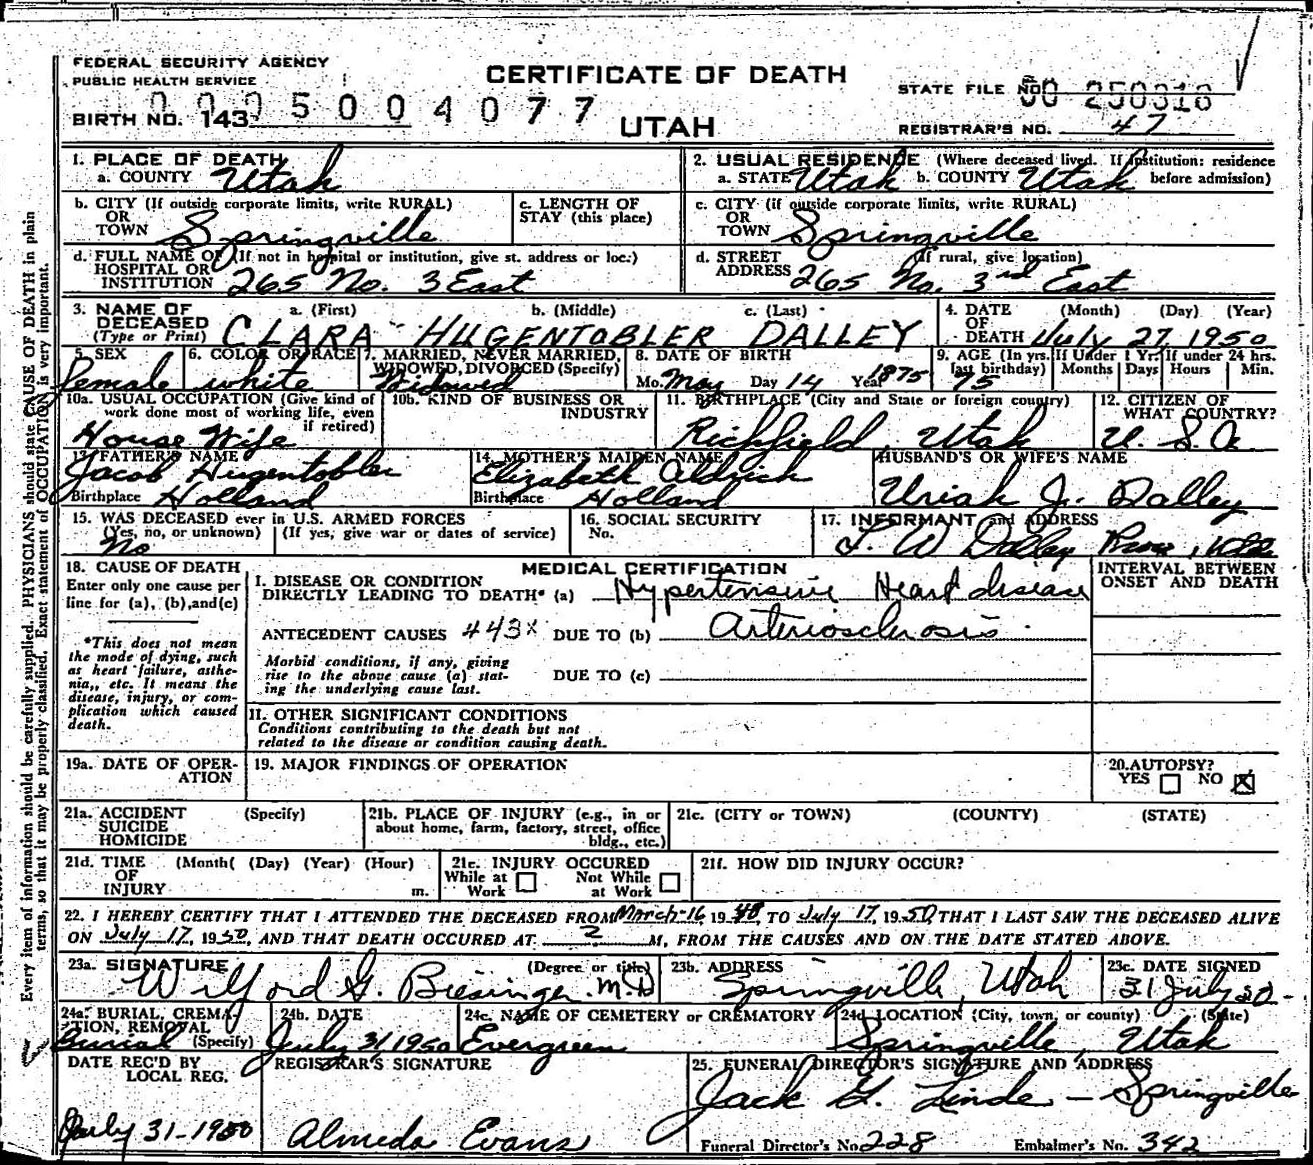 FEDERAL SECURITY AGENCY
PUBLIC HEALTH SERVICE
CERTIFICATE OF DEATH
UTAH
BIRTH NO. 143 0005004077
STATE FILE NO. 50 250318
REGISTRAR'S NO. 47
Every item of information should be carefully supplied. PHYSICIANS should state CAUSE OF DEATH in plain
terms, so that it may be properly classified. Exact statement of OCCUPATION is very important.
1. PLACE OF DEATH
a. COUNTY Utah
b. CITY (If outside corporate limits, write RURAL)
OR
TOWN Springville
c. LENGTH OF
STAY (this place)
d. FULL NAME OF (If not in hospital or institution, give st. address or loc.)
HOSPITAL OR
INSTITUTION 265 No. 3 East
2. USUAL RESIDENCE (Where deceased lived. If institution: residence
a. STATE Utah b. COUNTY Utah before admission)
c. CITY (if outside corporate limits, write RURAL)
OR
TOWN Springville
d. STREET (If rural, give location)
ADDRESS 265 No. 3rd East
3. NAME OF a. (First) b. (Middle) c. (Last)
DECEASED
(Type or Print) CLARA HUGENTOBLER DALLEY
4. DATE (Month) (Day) (Year)
OF
DEATH July 27, 1950
5. SEX
Female
6. COLOR OR RACE
white
7. MARRIED, NEVER MARRIED,
WIDOWED, DIVORCED (Specify)
Widowed
8. DATE OF BIRTH
Mo. May Day 14 Year 1875
9. AGE (In yrs. If Under 1 Yr. If under 24 hrs.
last birthday) Months Days Hours Min.
75
10a. USUAL OCCUPATION (Give kind of
work done most of working life, even
if retired)
House Wife
10b. KIND OF BUSINESS OR
INDUSTRY
11. BIRTHPLACE (City and State or foreign country)
Richfield, Utah
12. CITIZEN OF
WHAT COUNTRY?
U. S. A
13. FATHER'S NAME
Jacob Hugentobler
Birthplace Holland
14. MOTHER'S MAIDEN NAME
Elizabeth Aldrich
Birthplace Holland
HUSBAND'S OR WIFE'S NAME
Uriah J. Dalley
15. WAS DECEASED ever in U.S. ARMED FORCES
(Yes, no, or unknown) (If yes, give war or dates of service)
No
16. SOCIAL SECURITY
No.
17. INFORMANT and ADDRESS
L. W Dalley
18. CAUSE OF DEATH
Enter only one cause per
line for (a), (b), and (c)
*This does not mean
the mode of dying, such
as heart failure, asthe-
nia,, etc. It means the
disease, injury, or com-
plication which caused
death.
MEDICAL CERTIFICATION
I. DISEASE OR CONDITION
DIRECTLY LEADING TO DEATH* (a) Hypertensive Heart disease
ANTECEDENT CAUSES 443X DUE TO (b) Arteriosclerosis
Morbid conditions, if any, giving
rise to the above cause (a) stat-
ing the underlying cause last.
DUE TO (c)
II. OTHER SIGNIFICANT CONDITIONS
Conditions contributing to the death but not
related to the disease or condition causing death.
INTERVAL BETWEEN
ONSET AND DEATH
19a. DATE OF OPER-
ATION
19. MAJOR FINDINGS OF OPERATION
20. AUTOPSY?
YES NO X
21a. ACCIDENT (Specify)
SUICIDE
HOMICIDE
21b. PLACE OF INJURY (e.g., in or
about home, farm, factory, street, office
bldg., etc.)
21c. (CITY or TOWN) (COUNTY) (STATE)
21d. TIME (Month( (Day) (Year) (Hour)
OF
INJURY m.
21e. INJURY OCCURED
While at Not While
Work at Work
21f. HOW DID INJURY OCCUR?
22. I HEREBY CERTIFY THAT I ATTENDED THE DECEASED FROM March-16, 1948, TO July 17, 1950 THAT I LAST SAW THE DECEASED ALIVE
ON July 17, 1950, AND THAT DEATH OCCURED AT 2 M, FROM THE CAUSES AND ON THE DATE STATED ABOVE.
23a. SIGNATURE (Degree or title)
Wilford G. Biesinger. M.D
23b. ADDRESS
Springville, Utah
23c. DATE SIGNED
31 July 50
24a. BURIAL, CREMA-
TION, REMOVAL
Burial (Specify)
24b. DATE
July 31 1950
24c. NAME OF CEMETERY or CREMATORY
Evergreen
24d. LOCATION (City, town, or county) (State)
Springville, Utah
DATE REC'D BY
LOCAL REG.
July 31-1950
REGISTRAR'S SIGNATURE
Almeda Evans
25. FUNERAL DIRECTOR'S SIGNATURE AND ADDRESS
Jack G. Linde - Springville
Funeral Director's No. 228 Embalmer's No. 342